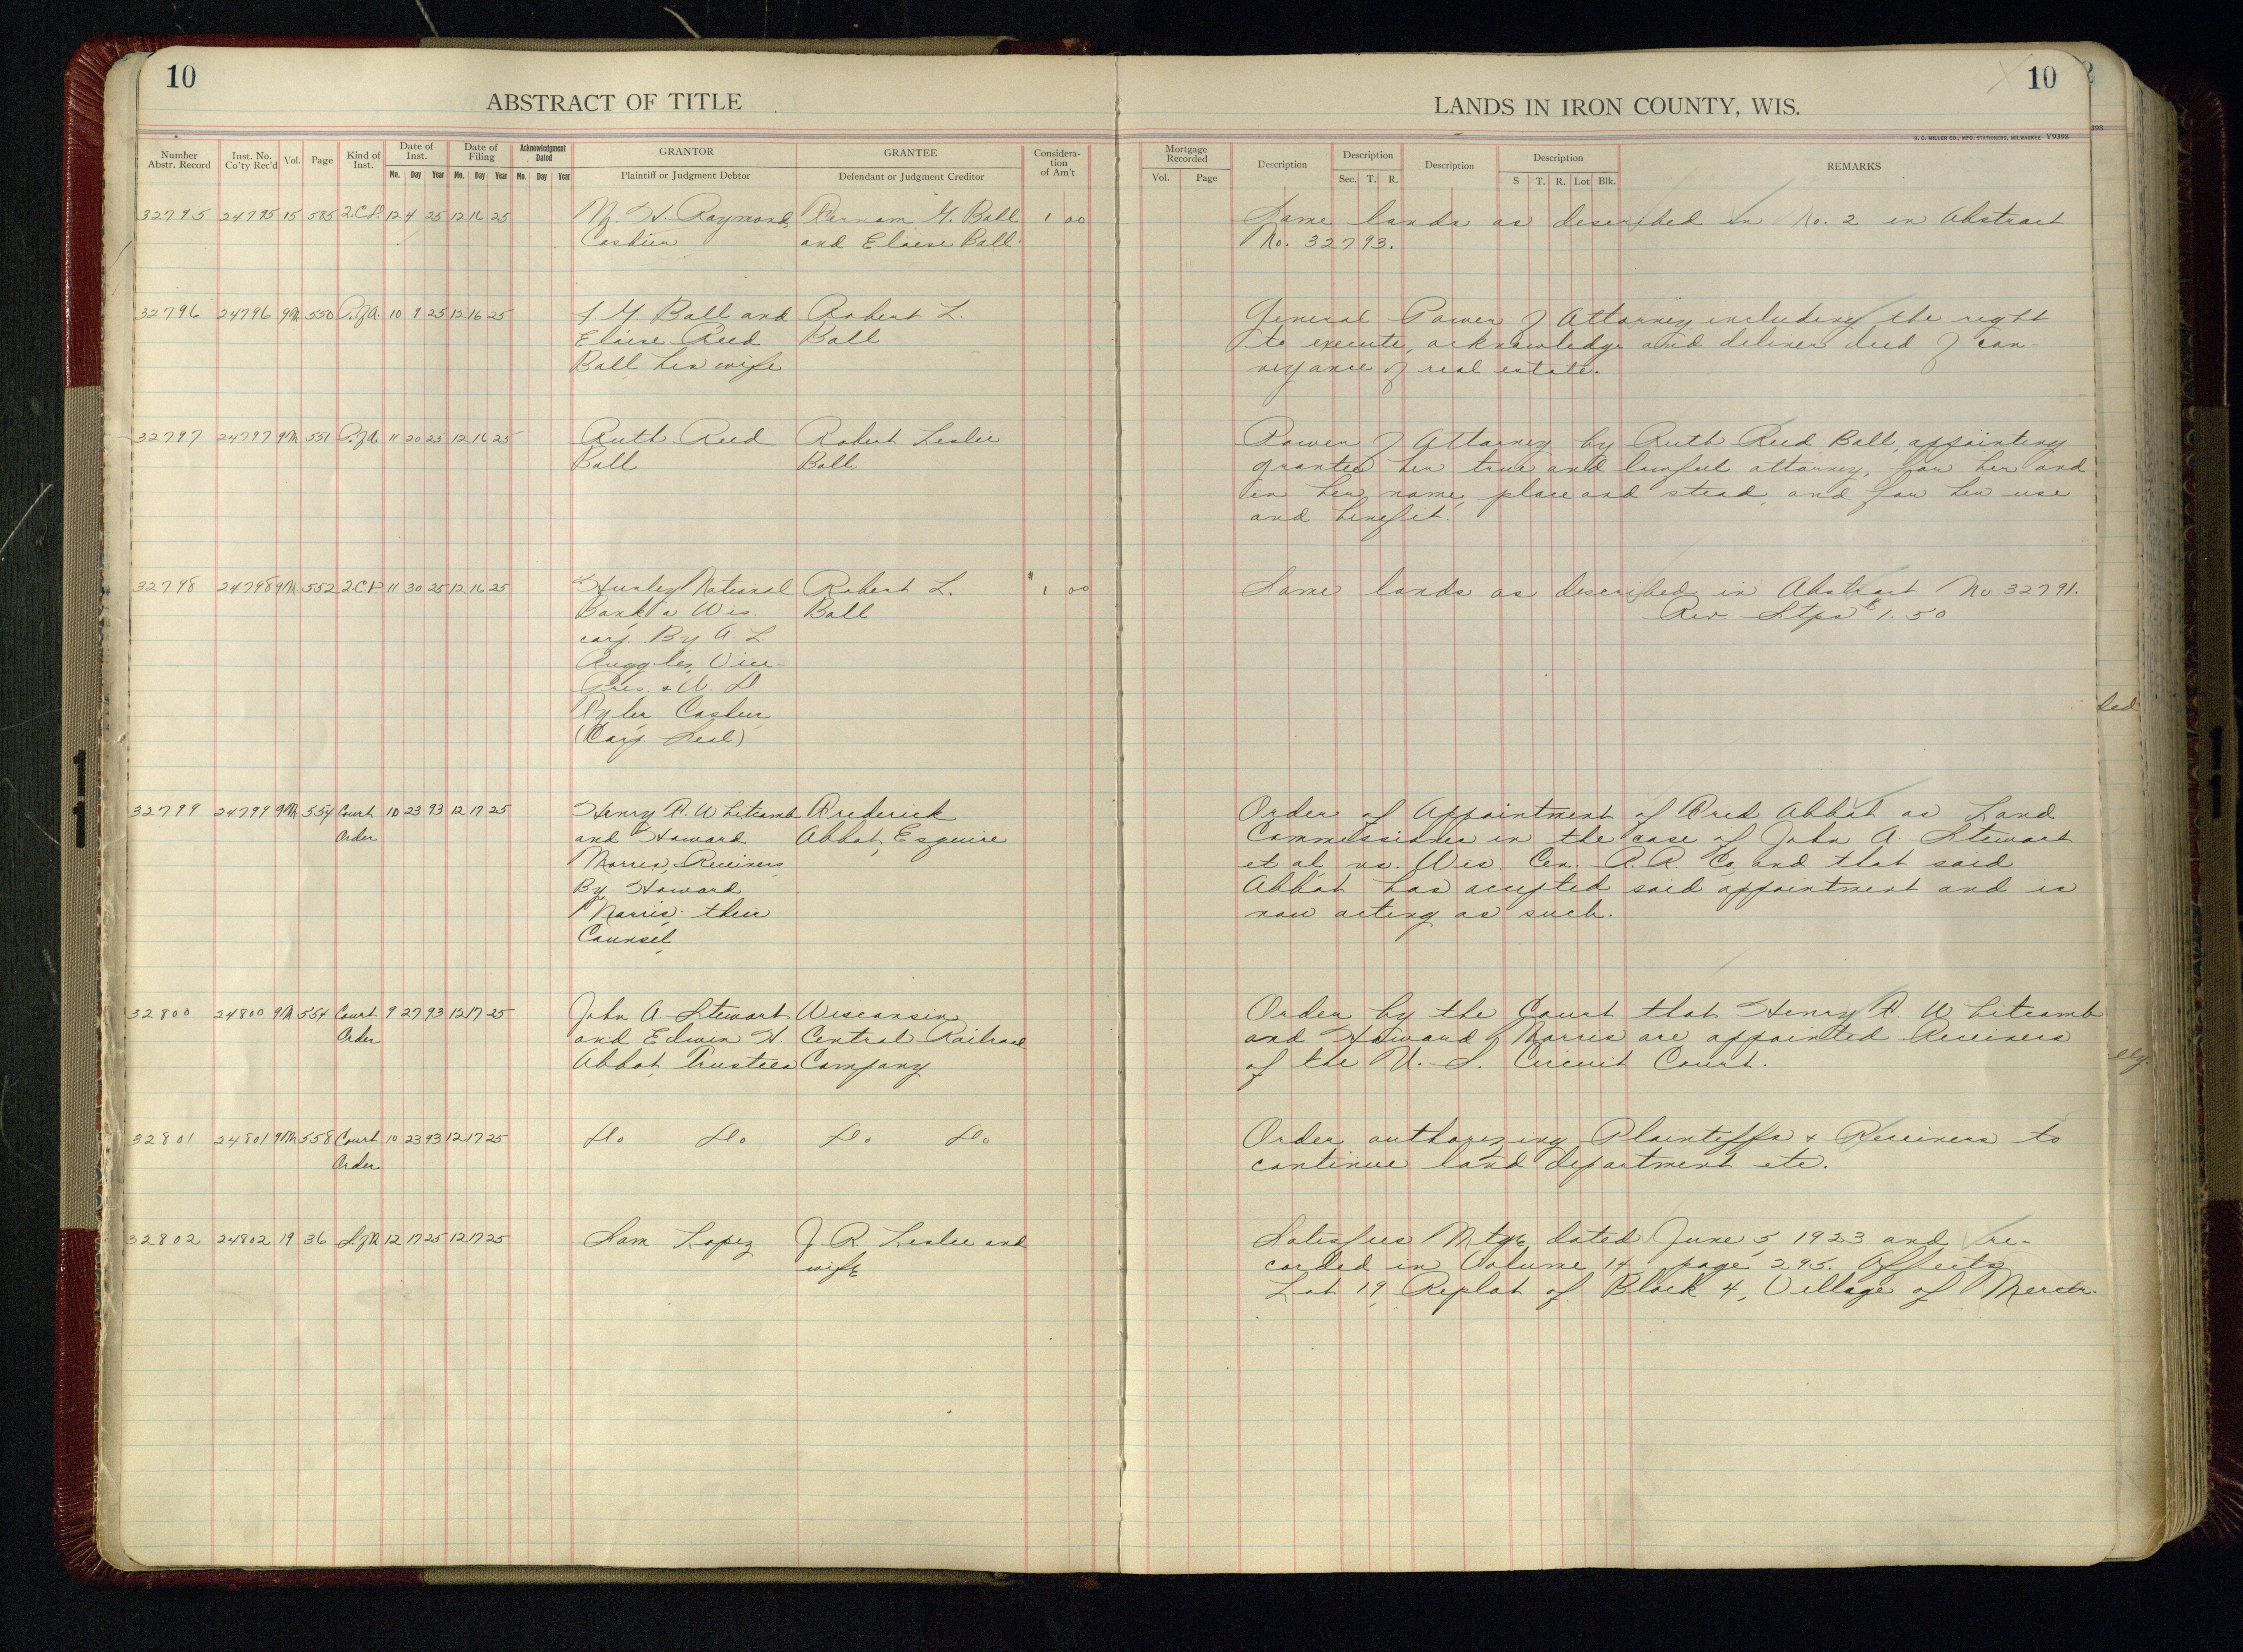 10
ABSTRACT OF TITLE
Number Abstr. Record Inst. No. Co'ty Rec'd Vol. Page Kind of Inst. Date of Inst. Date of Filing Acknowledgment Dated GRANTOR GRANTEE Consideration of Am't
Mo. Day Year Mo. Day Year Mo. Day Year Plaintiff or Judgment Debtor Defendant or Judgment Creditor
32795 24795 15 585 2.C.D. 12 4 25 12 16 25 H. Raymond, G. Ball 1 00
Cashier and Eloise Ball
32796 24796 9M 550 P.of A. 10 9 25 12 16 25 G. Ball and Robert L.
Eloise Reed Ball
Ball his wife
32797 24797 9M 551 P.of A. 11 20 25 12 16 25 Ruth Reed Robert Leslie
Ball Ball
32798 24798 9M 552 2.C.D. 11 30 25 12 16 25 Hurley National Robert L. $1 00
Bank a Wis. Ball
corp By A. L.
Ruggles, Vice-
Pres. & W. S.
Tyler Cashier
(Corp. Seal)
32799 24799 9M 554 Court 10 23 93 12 17 25 Henry F. Whitcomb Frederick
Order and Howard Abbot, Esquire
Morris, Receivers
By Howard
Morris, their
Counsel,
32800 24800 9M 554 Court 9 27 93 12 17 25 John A Stewart Wisconsin
Order and Edwin H. Central Railroad
Abbot, Trustees Company
32801 24801 9M 558 Court 10 23 93 12 17 25 Do Do Do Do
Order
32802 24802 19 36 S.of M 12 17 25 12 17 25 Sam Lopez J. R. Leslie and
wife
10
LANDS IN IRON COUNTY, WIS.
H. C. MILLER CO., MFG. STATIONERS, MILWAUKEE V9398
Mortgage Recorded Description Description Description Description REMARKS
Vol. Page Sec. T. R. S T. R. Lot Blk.
Same lands as described in No. 2 in Abstract
No. 32793.
General Power of Attorney including the right
to execute, acknowledge and deliver deed of con-
veyance of real estate.
Power of Attorney by Ruth Reed Ball, appointing
grantee her true and lawful attorney, for her and
in her name, place and stead, and for her use
and benefit.
Same lands as described in Abstract No 32791.
Rev Stps $1.50
Order of Appointment of Fred Abbot as Land
Commissioner in the case of John A. Stewart
et al, vs. Wis. Cen. R.R. Co, and that said
Abbot has accepted said appointment and is
now acting as such.
Order by the Court that Henry F. Whitcomb
and Howard Morris are appointed Receivers
of the U. S. Circuit Court.
Order authorizing Plaintiffs & Receivers to
continue land department etc.
Satisfies Mtge dated June 5, 1923 and re-
corded in Volume 14 page 295. Affects
Lot 19, Replat of Block 4, Village of Mercer.